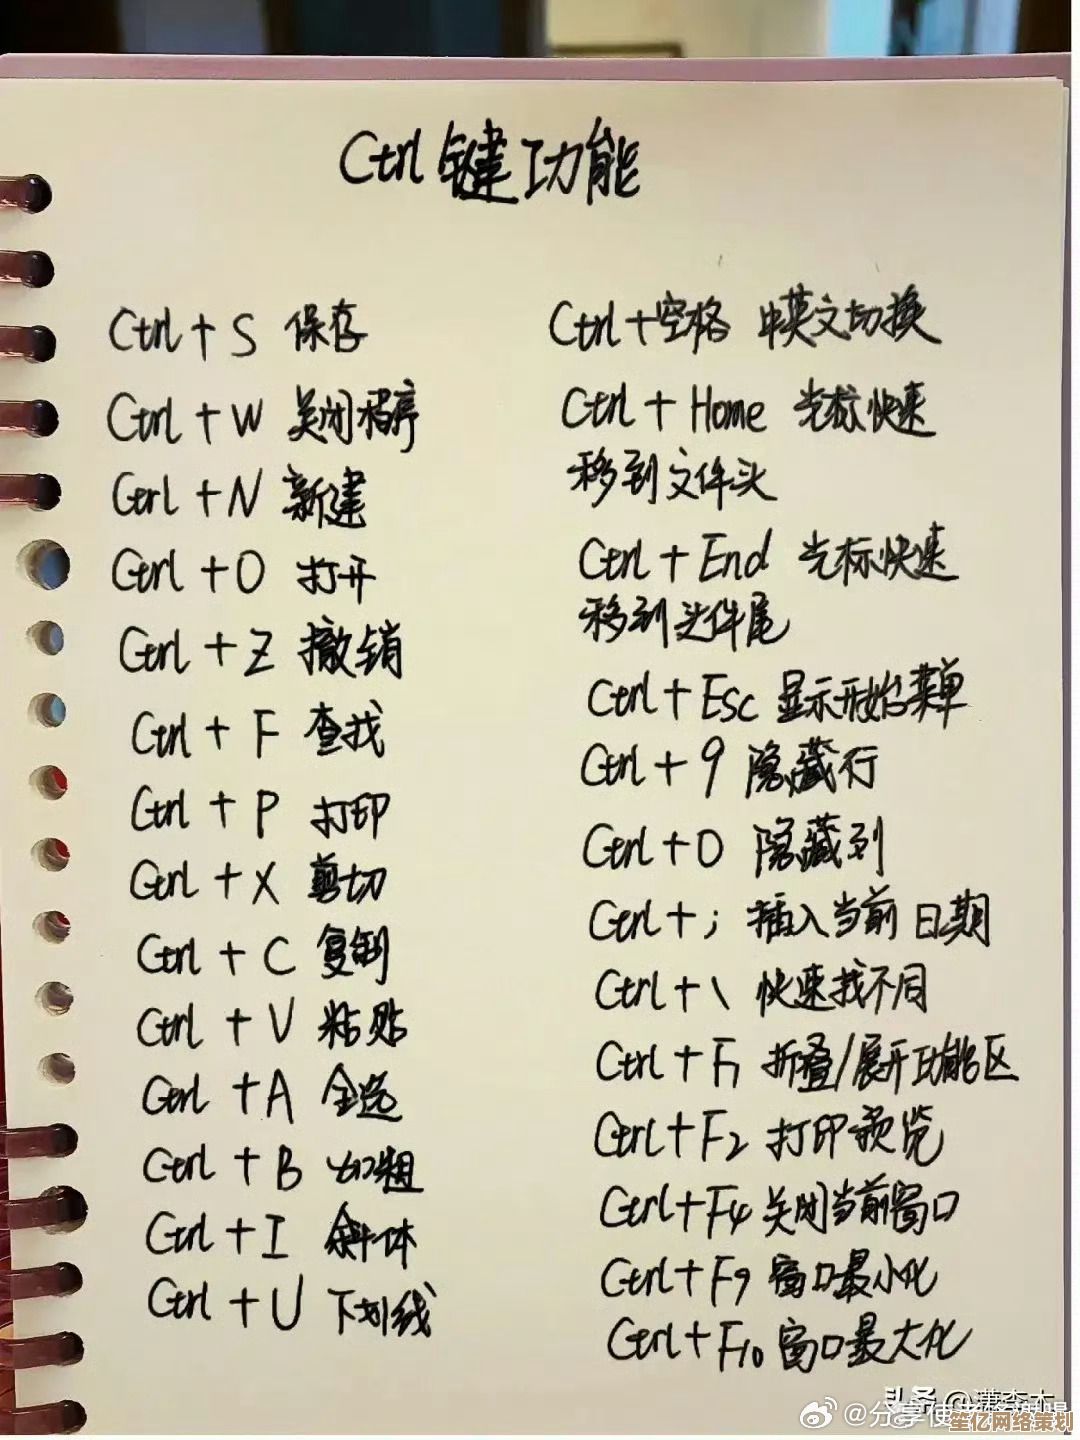 Ctrl键功能
Ctrl + S 保存
Ctrl + W 关闭程序
Ctrl + N 新建
Ctrl + O 打开
Ctrl + Z 撤销
Ctrl + F 查找
Ctrl + P 打印
Ctrl + X 剪切
Ctrl + C 复制
Ctrl + V 粘贴
Ctrl + A 全选
Ctrl + B 加粗
Ctrl + I 斜体
Ctrl + U 下划线
Ctrl + 空格 中英文切换
Ctrl + Home 光标快速
移到文件头
Ctrl + End 光标快速
移到头件尾
Ctrl + Esc 显示开始菜单
Ctrl + 9 隐藏行
Ctrl + 0 隐藏列
Ctrl + ; 插入当前日期
Ctrl + \ 快速找不同
Ctrl + F1 折叠/展开功能区
Ctrl + F2 打印预览
Ctrl + F4 关闭当前窗口
Ctrl + F9 窗口最小化
Ctrl + F10 窗口最大化
头条
@分享使
笙亿网络策划